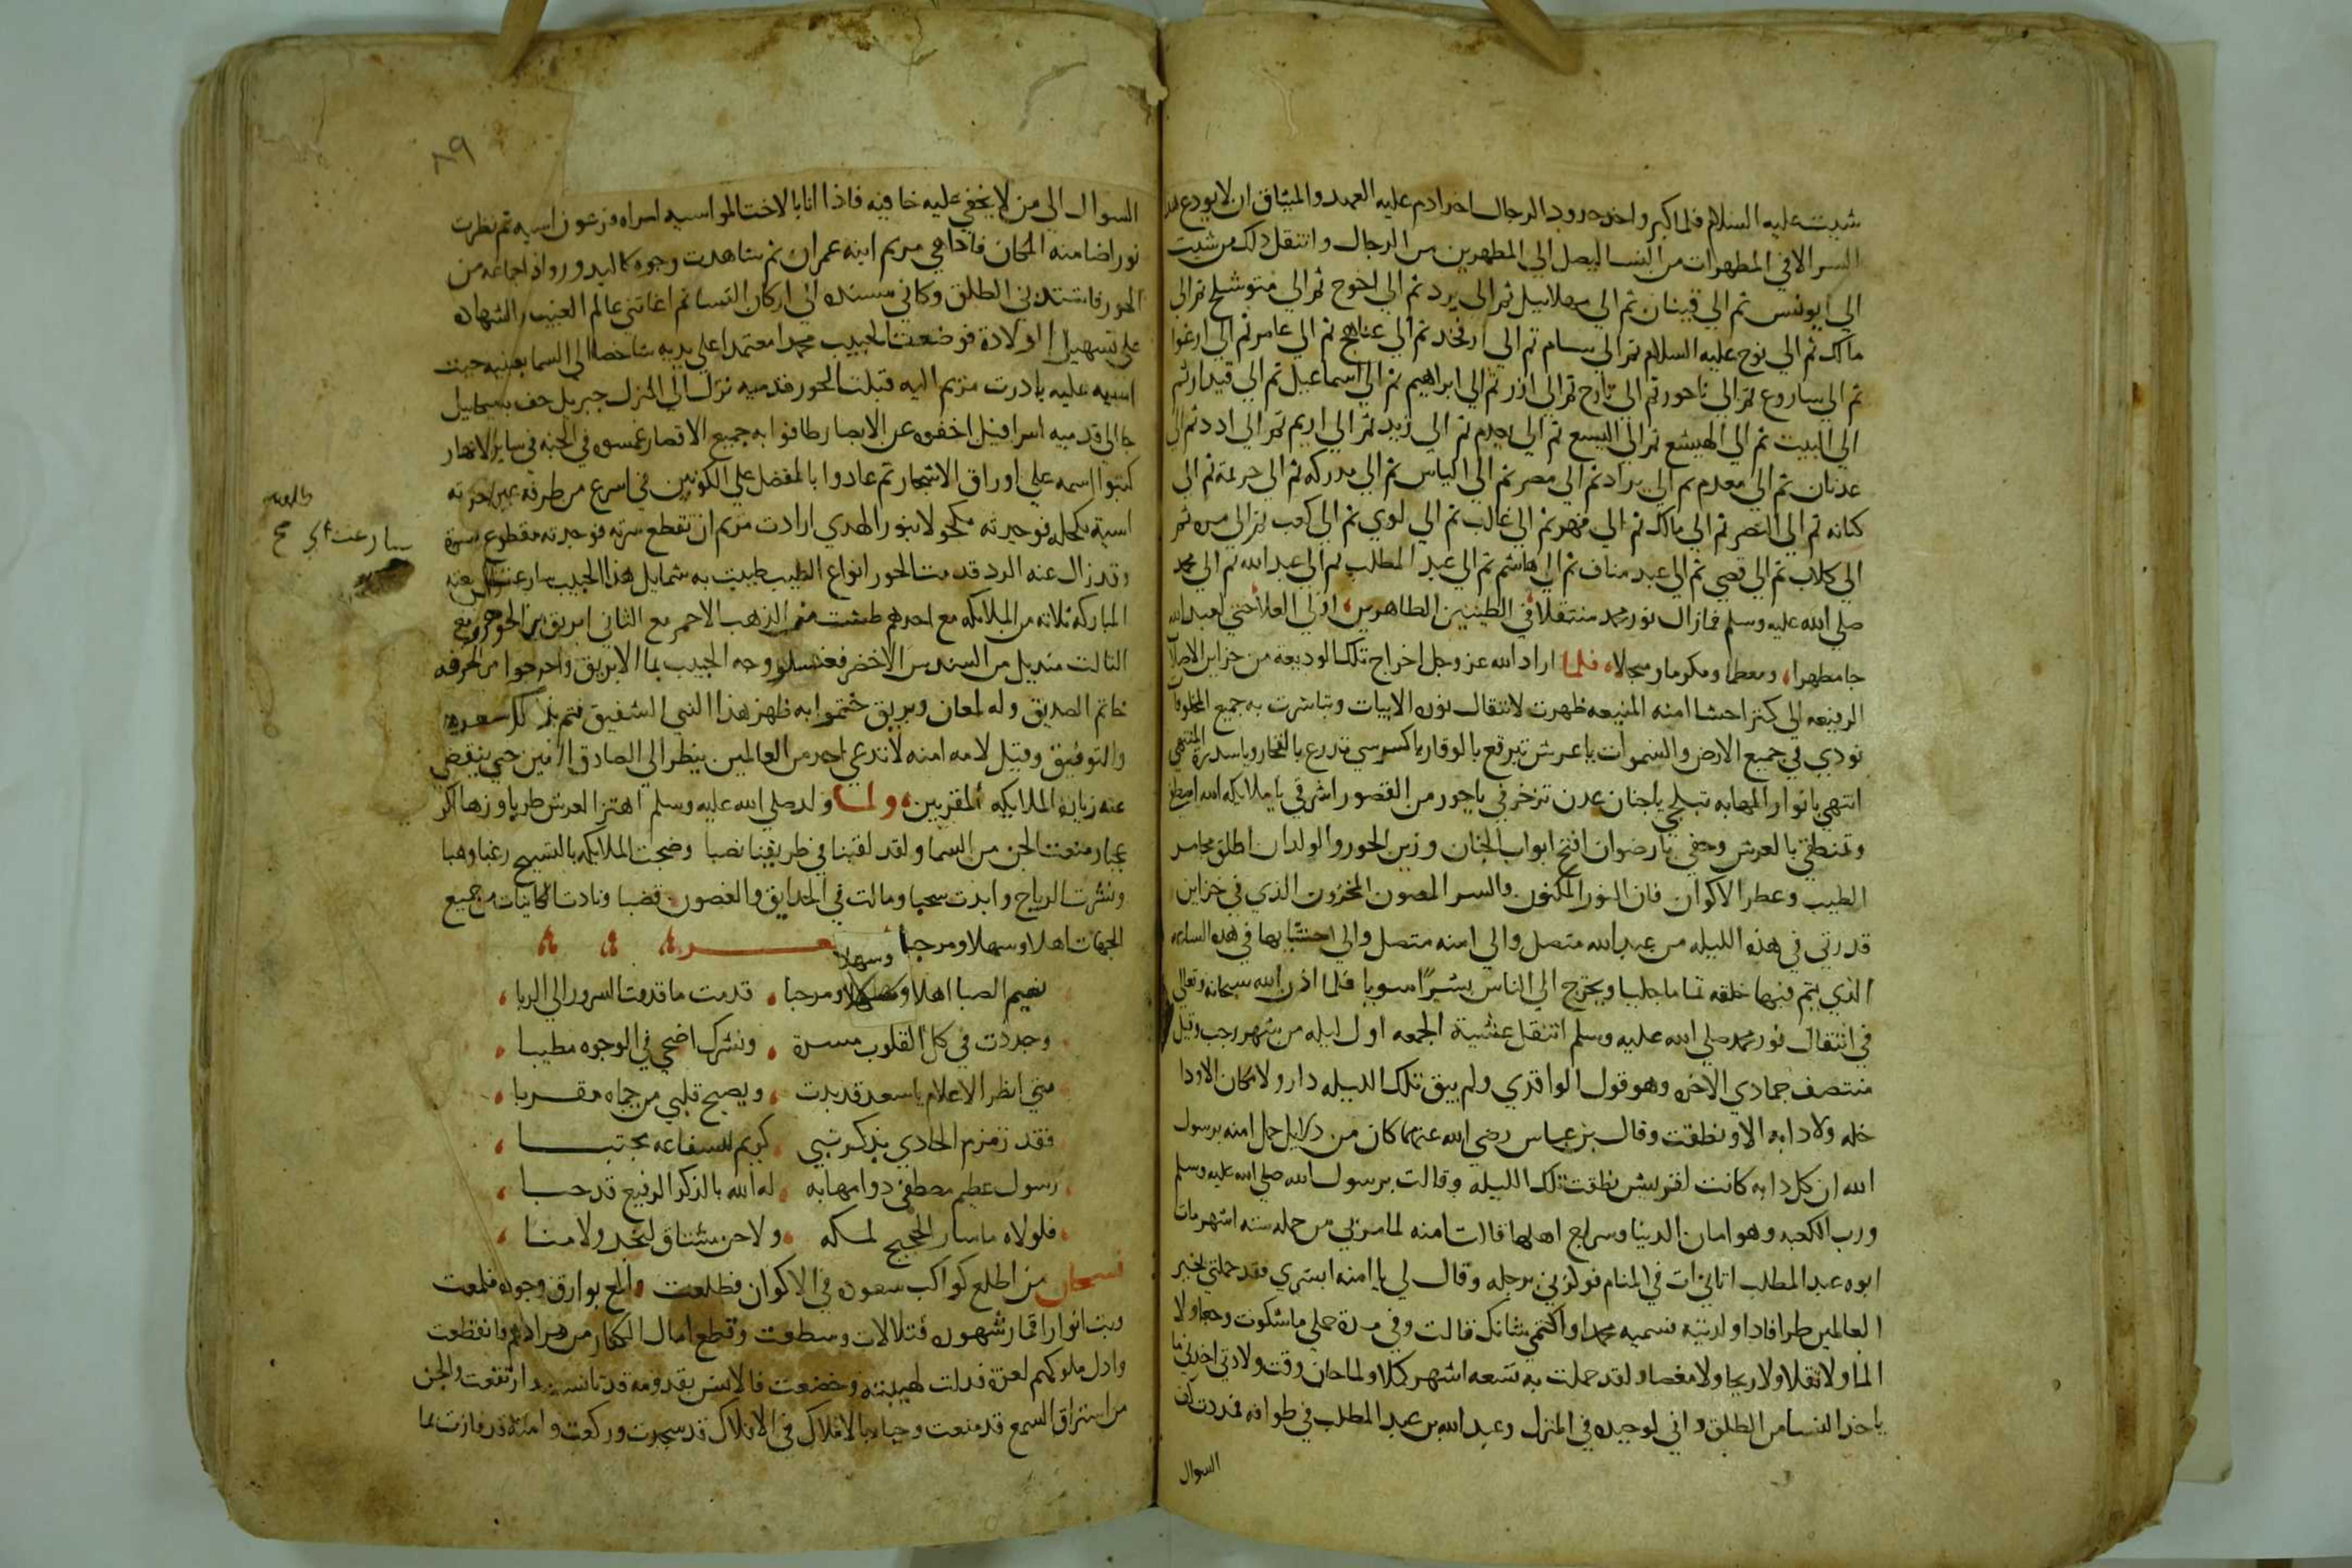 شيت عليه السلام فلما كبر واخرجه روبد الرجال اخذ ادم عليه العهد والميثاق ان لا يودع هذا
السر الا في المطهرات من النسا ليصل الي المطهرين من الرجال وانتقل ذلك من شيت
الي ايونس ثم الي قينان ثم الي مهلاييل ثم الي يرد ثم الي اخوخ ثم الي متوشلخ ثم الي
مالك ثم الي نوح عليه السلام ثم الي سام ثم الي ارفخد ثم الي عناهج ثم الي عامر ثم الي ارغوا
ثم الي ساروع ثم الي ناحور ثم الي تارح ثم الي ازر ثم الي ابراهيم ثم الي اسماعيل ثم الي قيدار ثم
الي البيت ثم الي الهيشع ثم الي اليسع ثم الي ثم الي زيد ثم الي اريم ثم الي ادد ثم الي
عدنان ثم الي معدم ثم الي براد ثم الي مصر ثم الي الياس ثم الي مدركه ثم الي خزيمه ثم الي
كنانه ثم الي النضر ثم الي مالك ثم الي فهر ثم الي غالب ثم الي لوي ثم الي كعب ثم الي مره ثم
الي كلاب ثم الي قصي ثم الي عبد مناف ثم الي هاشم ثم الي عبد المطلب ثم الي عبد الله ثم الي محمد
صلي الله عليه وسلم فمازال نور محمد منتقلا في الطيبين الطاهرين، اولي العلا حتي لعبد الله
جا مطهرا، ومعظما ومكرما ومبجلا، فلما اراد الله عز وجل اخراج تلك الوديعة من خزاين الاصلاب
الرفيعه الي كنز احشا امنه المنيعه ظهرت لانتقال نوره الايات وتباشرت به جميع المخلوقات
نودي في جميع الارض والسموات يا عرش تبرقع بالوقار يا كرسي تدرع بالفخار ويا سدرة المنتهي
انتهي يا نوار المهابه تبلجي يا جنان عدن تزخرفي يا حور من القصور اشرقي يا ملايكه الله
وتمنطقي بالعرش وحفي يا رضوان افتح ابواب الجنان وزين الحور والولدان اطلق مجامر
الطيب وعطر الاكوان فان النور المكنون والسر المصون المخزون الذي في خزاين
قدرتي في هذه الليله من عبد الله متصل والي امنه متصل والي احشايها في هذه الساعه
الذي يتم فيها خلقه تماما جليا ويخرج الي الناس بشرًا سويا فلما اذن الله سبحانه وتعالي
في انتقال نور محمد صلي الله عليه وسلم انتقل عشية الجمعه اول ليله من شهر رجب وقيل
منتصف جمادي الاخره وهو قول الواقدي ولم يبق تلك الليله دار ولا مكان الا ودا
خله ولا دابه الا ونطقت وقال بن عباس رضي الله عنهما كان من دلايل حمل امنه برسول
الله ان كل دابه كانت لقريش نطقت تلك الليلة وقالت برسول الله صلي الله عليه وسلم
ورب الكعبه وهو امان الدنيا وسراج اهلها قالت امنه لما مر بي من حمله سته اشهر مات
ابوه عبد المطلب اتاني ات في المنام فوكزني برجله وقال لي يا امنه ابشري فقد حملتي بخير
العالمين طرا فاذا ولدتيه فسميه محمدا واكتمي شانك قالت وفي مدة حملي ما شكوت وجعا ولا
الما ولا ثقلا ولا ريحا ولا مغصا ولقد حملت به تسعه اشهر كملا ولما حان وقت ولادتي اخذني ما
ياخذ النسا من الطلق واني لوحيده في المنزل وعبد الله بن عبد المطلب في طوافه فمددت كف
السوال
٨٩
السوال الي من لا يخفي عليه خافيه فاذا انا بالاخت المواسيه امراه فرعون اسيه ثم نظرت
نورا ضا منه المكان فاذا هي مريم ابنه عمران ثم شاهدت وجوه كالبدور واذا جماعه من
الحور فاشتد بي الطلق وكاني مستنده الي اركان النسا ثم اغاثني عالم الغيب والشهاده
علي تسهيل الولادة فوضعت الحبيب محمدا معتمدا علي يديه شاخصا الي السما بعينيه حنت
اسيه عليه بادرت مريم اليه قبلت الحور قدميه نزل الي المنزل جبريل حف به ميكاييل
جا الي قدميه اسرافيل اخفوه عن الابصار طافوا به جميع الاقطار غمسوه في الجنه في ساير الانهار
كتبوا اسمه علي اوراق الاشجار ثم عادوا بالمفضل علي الكونين في اسرع من طرفة عين
اسية بكحله فوجدته مكحولا بنور الهدي ارادت مريم ان تقطع سرته فوجدته مقطوع سرة
وقد زال عنه الرد قدمت الحور انواع الطيب طيبت به شمايل هذا الحبيب سارعت
المباركه ثلاثه من الملايكه مع احدهم طشت من الذهب الاحمر مع الثاني ابريق من الجوهر ومع
الثالث منديل من السندس الاخضر فغسلو وجه الحبيب بما الابريق واخرجوا من الحرقه
خاتم الصديق وله لمعان وبريق ختموا به ظهر هذا النبي الشفيق
والتوفيق وقيل لامه امنه لا تدعي احد من العالمين ينظر الي الصادق الامين حتي ينقضي
عنه زياره الملايكه المقربين، ولما ولد صلي الله عليه وسلم اهتز العرش طربا وزها
عجبا ومنعت الجن من السما ولقد لقينا في طريقنا نصبا وضجت الملايكه بالتسبيح رغبا وهبا
ونشرت الرياح وابدت سحبا ومالت في الحدايق والغصون قضبا ونادت الكاينات من جميع
الجهات اهلا وسهلا ومرحبا شعر
نعيم الصبا اهلا وسهلا ومرحبا، قدمت ما قدمت السرور الي الربا،
وجددت في كل القلوب مسرة، ونشرك اضحي في الوجوه مطيبا،
متي انظر الاعلام يا سعد قد بدت، ويصبح قلبي من حماه مقربا،
فقد زمزم الحادي بذكر نبي، كريم للشفاعه مجتبا،
رسول عظيم مصطفي ذوا مهابه، له الله بالذكر الرفيع قد حبا،
فلولاه ما سار الحجيج لمكه، ولا حن مشتاق لنجد ولا منا،
فسبحان من اطلع كواكب سعوده في الاكوان فطلعت والمع بوارق وجوده فلمعت
وبث انوار اقمار شهوده فتلالات وسطعت وقطع امال الكفار من مرادهم فانقطعت
واذل ملوكهم لعزة فذلت لهيبته وخضعت فالانس بقدومه قد تانست وارتفعت والجن
من استراق السمع قد منعت وجباه الاملاك في الافلاك قد سجدت وركعت وامنة قد فازت بما
سارعت
صح